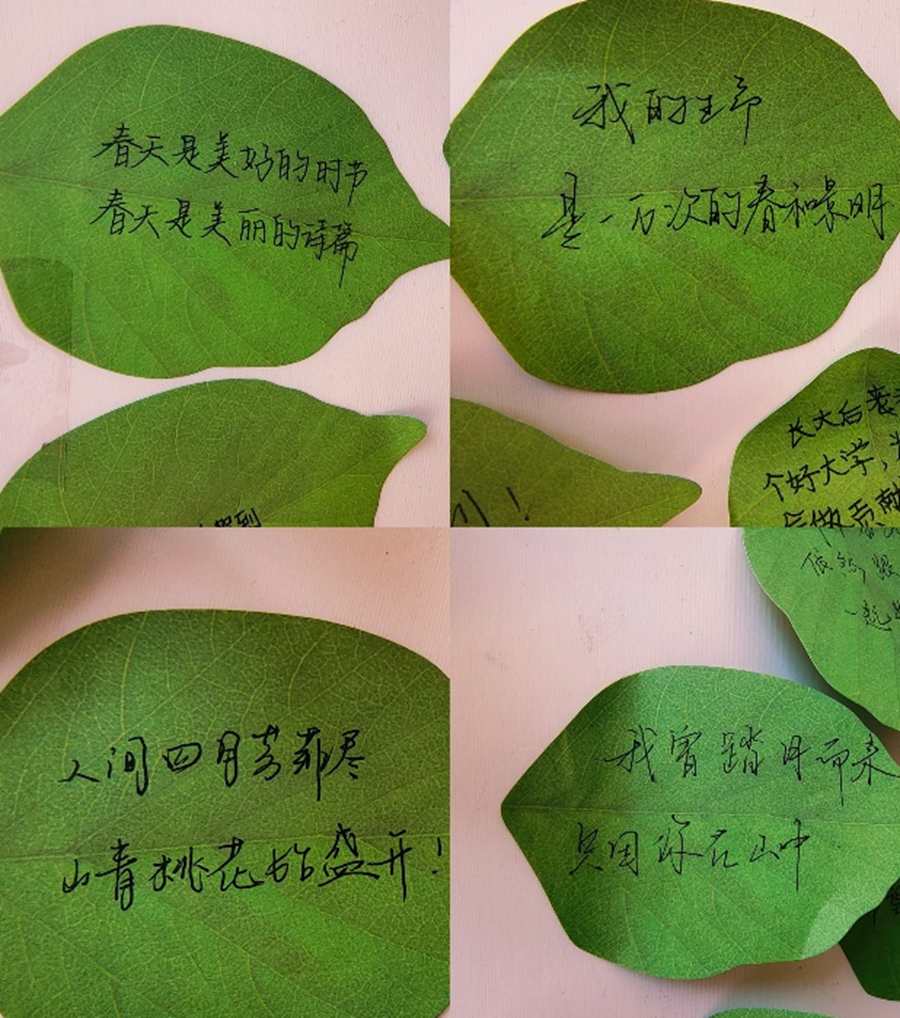 春天是美好的时节
春天是美丽的诗篇
我的生命
是一万次的春和景明
长大后考
个好大学，
做贡献
人间四月芳菲尽
山青桃花始盛开！
依然
一起
我曾踏月而来
只因你在山中